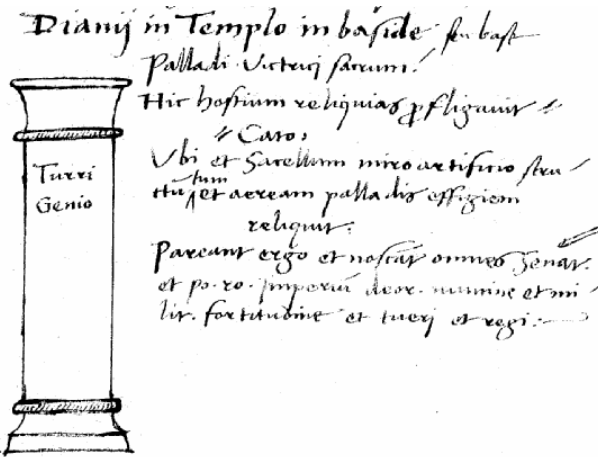 Dianij in Templo in baside seu basi
Palladi Victrici sacrum.
Hic hostium reliquias ꝓfligauit
Cato.
Vbi et Sacellum miro artificio stru-
ctu tum et aeream palladis effigiem
reliquit.
Pareant ergo et noscāt omnes Senat.
et po. ro. Imperiū deor. numine et mi-
lit. fortitudine et tueri et regi.
Turri
Genio